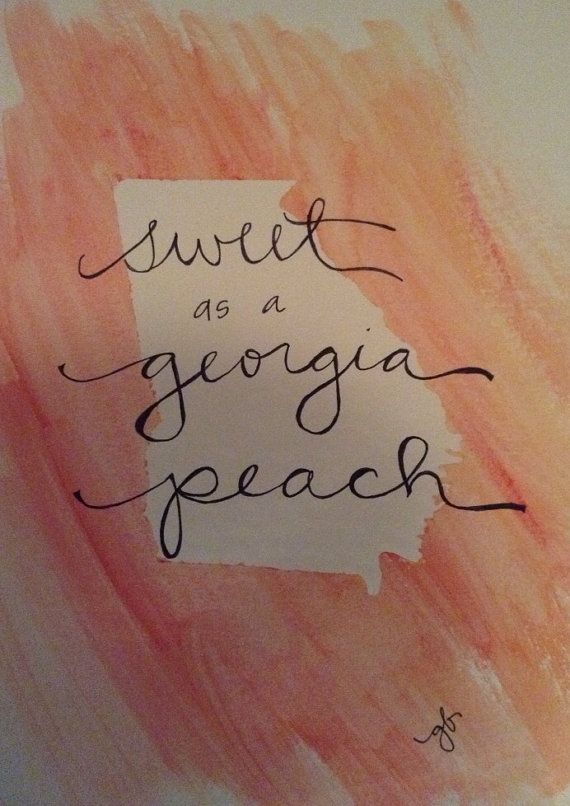 sweet
as a
georgia
peach
gb